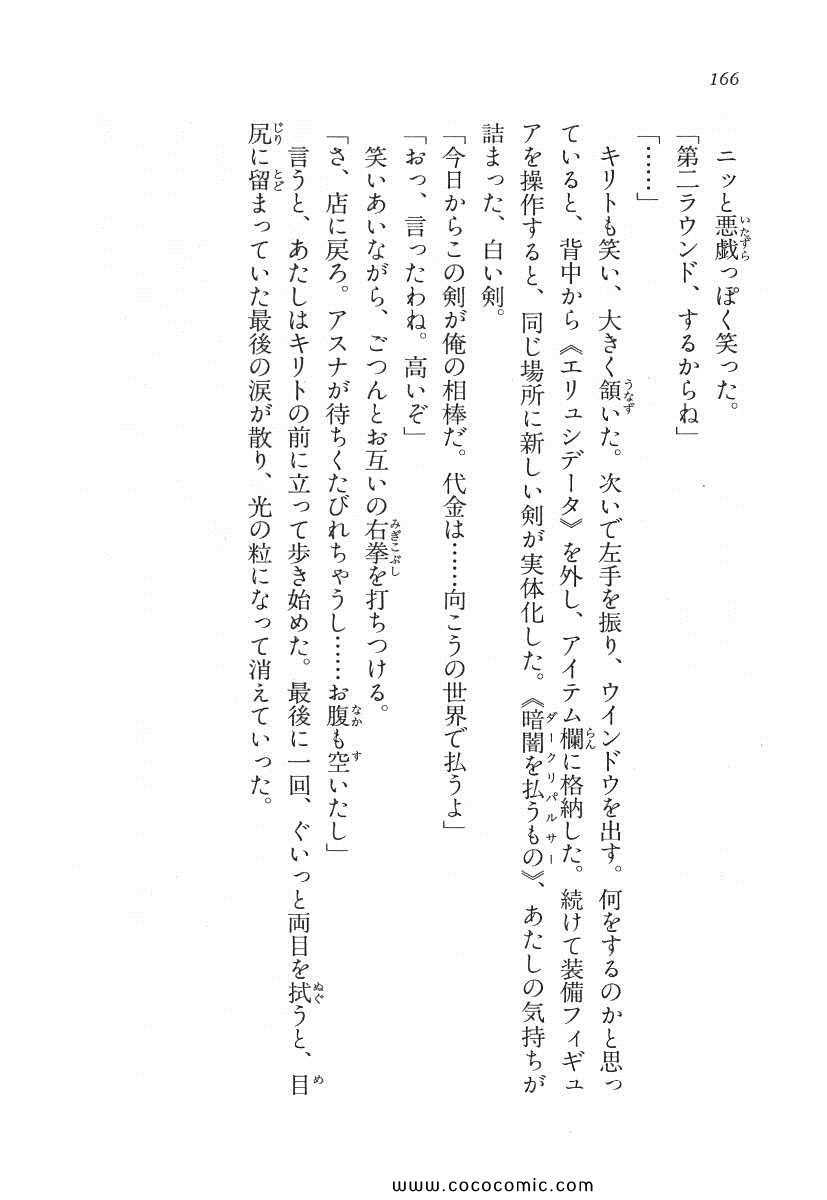 166
ニッと悪戯っぽく笑った。
「第二ラウンド、するからね」
「……」
キリトも笑い、大きく頷いた。次いで左手を振り、ウインドウを出す。何をするのかと思っ
ていると、背中から《エリュシデータ》を外し、アイテム欄に格納した。続けて装備フィギュ
アを操作すると、同じ場所に新しい剣が実体化した。《暗闇を払うもの》、あたしの気持ちが
詰まった、白い剣。
「今日からこの剣が俺の相棒だ。代金は……向こうの世界で払うよ」
「おっ、言ったわね。高いぞ」
笑いあいながら、ごつんとお互いの右拳を打ちつける。
「さ、店に戻ろ。アスナが待ちくたびれちゃうし……お腹も空いたし」
言うと、あたしはキリトの前に立って歩き始めた。最後に一回、ぐいっと両目を拭うと、目
尻に留まっていた最後の涙が散り、光の粒になって消えていった。
www.cococomic.com